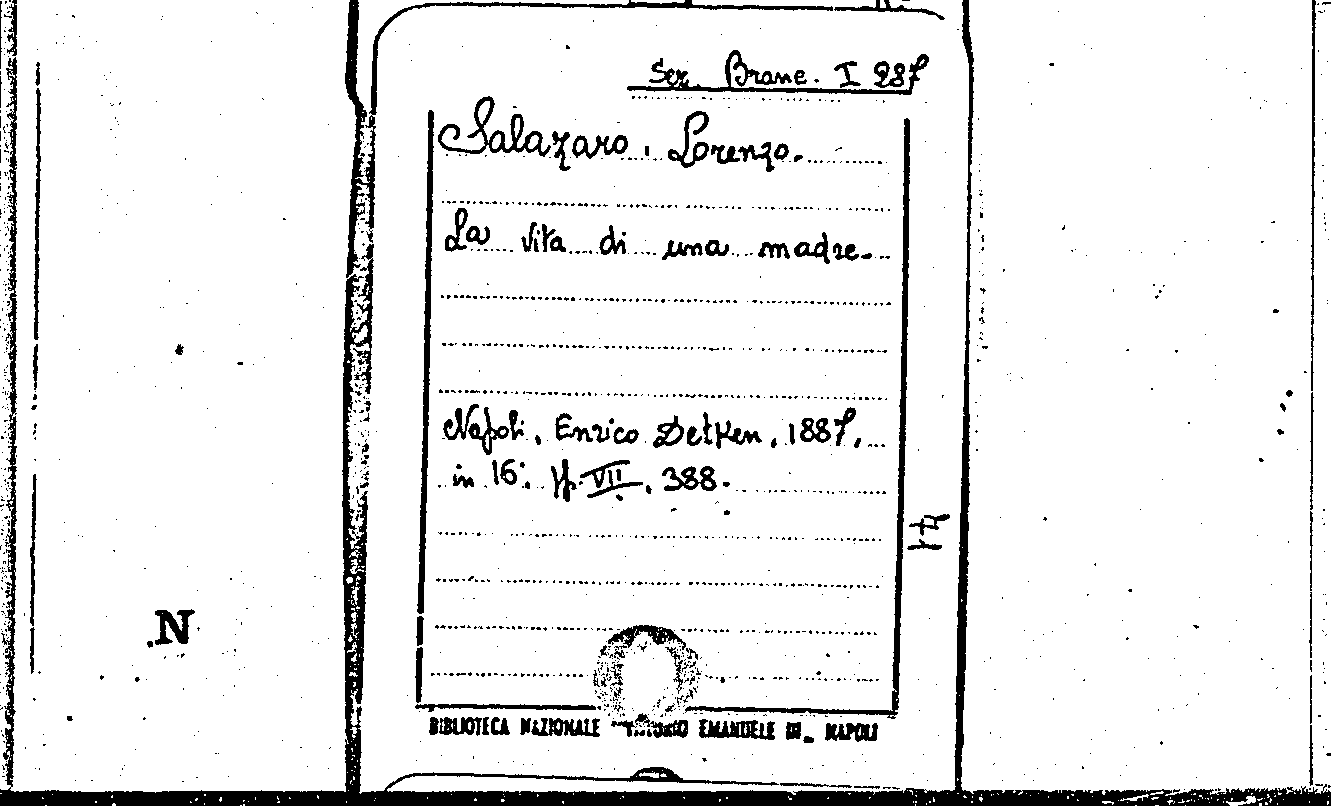 Ser. Branc. I 287
Salazaro, Lorenzo.
La vita di una madre.
Napoli, Enrico Detken, 1887,
in 16°. pp. VII, 388.
BIBLIOTECA NAZIONALE VITTORIO EMANUELE III - NAPOLI
N